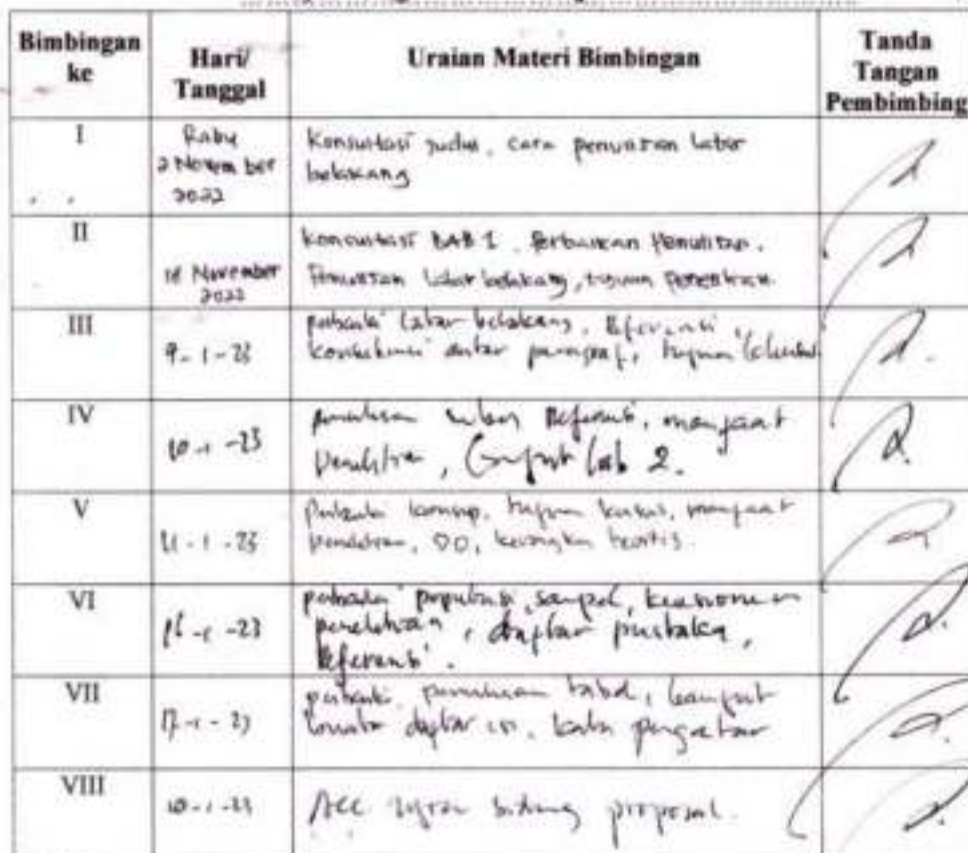 Bimbingan ke
Hari/
Tanggal
Uraian Materi Bimbingan
Tanda Tangan Pembimbing
I
Rabu
2 November
2022
Konsultasi judul, cara penulisan latar
belakang
II
November
2022
Konsultasi BAB I. Perbaikan Penulisan.
Penulisan latar belakang, tujuan Penelitian.
III
9-1-23
perbaiki latar belakang, Referensi,
antar paragraf, tujuan
IV
10-1-23
penulisan Referensi, manfaat
Penelitian, bab 2.
V
11-1-23
Perbaiki tujuan khusus, manfaat
penelitian, DO, kerangka teoritis.
VI
16-1-23
perbaiki populasi, sampel, kuesioner
penelitian, daftar pustaka,
Referensi.
VII
17-1-23
perbaiki penulisan tabel,
daftar isi, kata pengantar
VIII
-1-23
ACC sidang proposal.